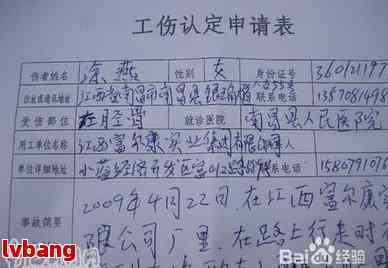 工伤认定申请表
伤者姓名 涂燕 性别 女 身份证号 360121197
住址或通讯地址 江西省南昌市南昌县 联系电话 1357081498
受伤部位 就诊医院 南昌县人民医院
用工单位名称 江西富尔康实业集团有限公司
单位详细地址 小蓝经济开发区富山 联系电话 158079101
2009年4月22日,在江西富尔康实
事故简要 限公司厂里,在路上行走时
lvbang
Baidu百科